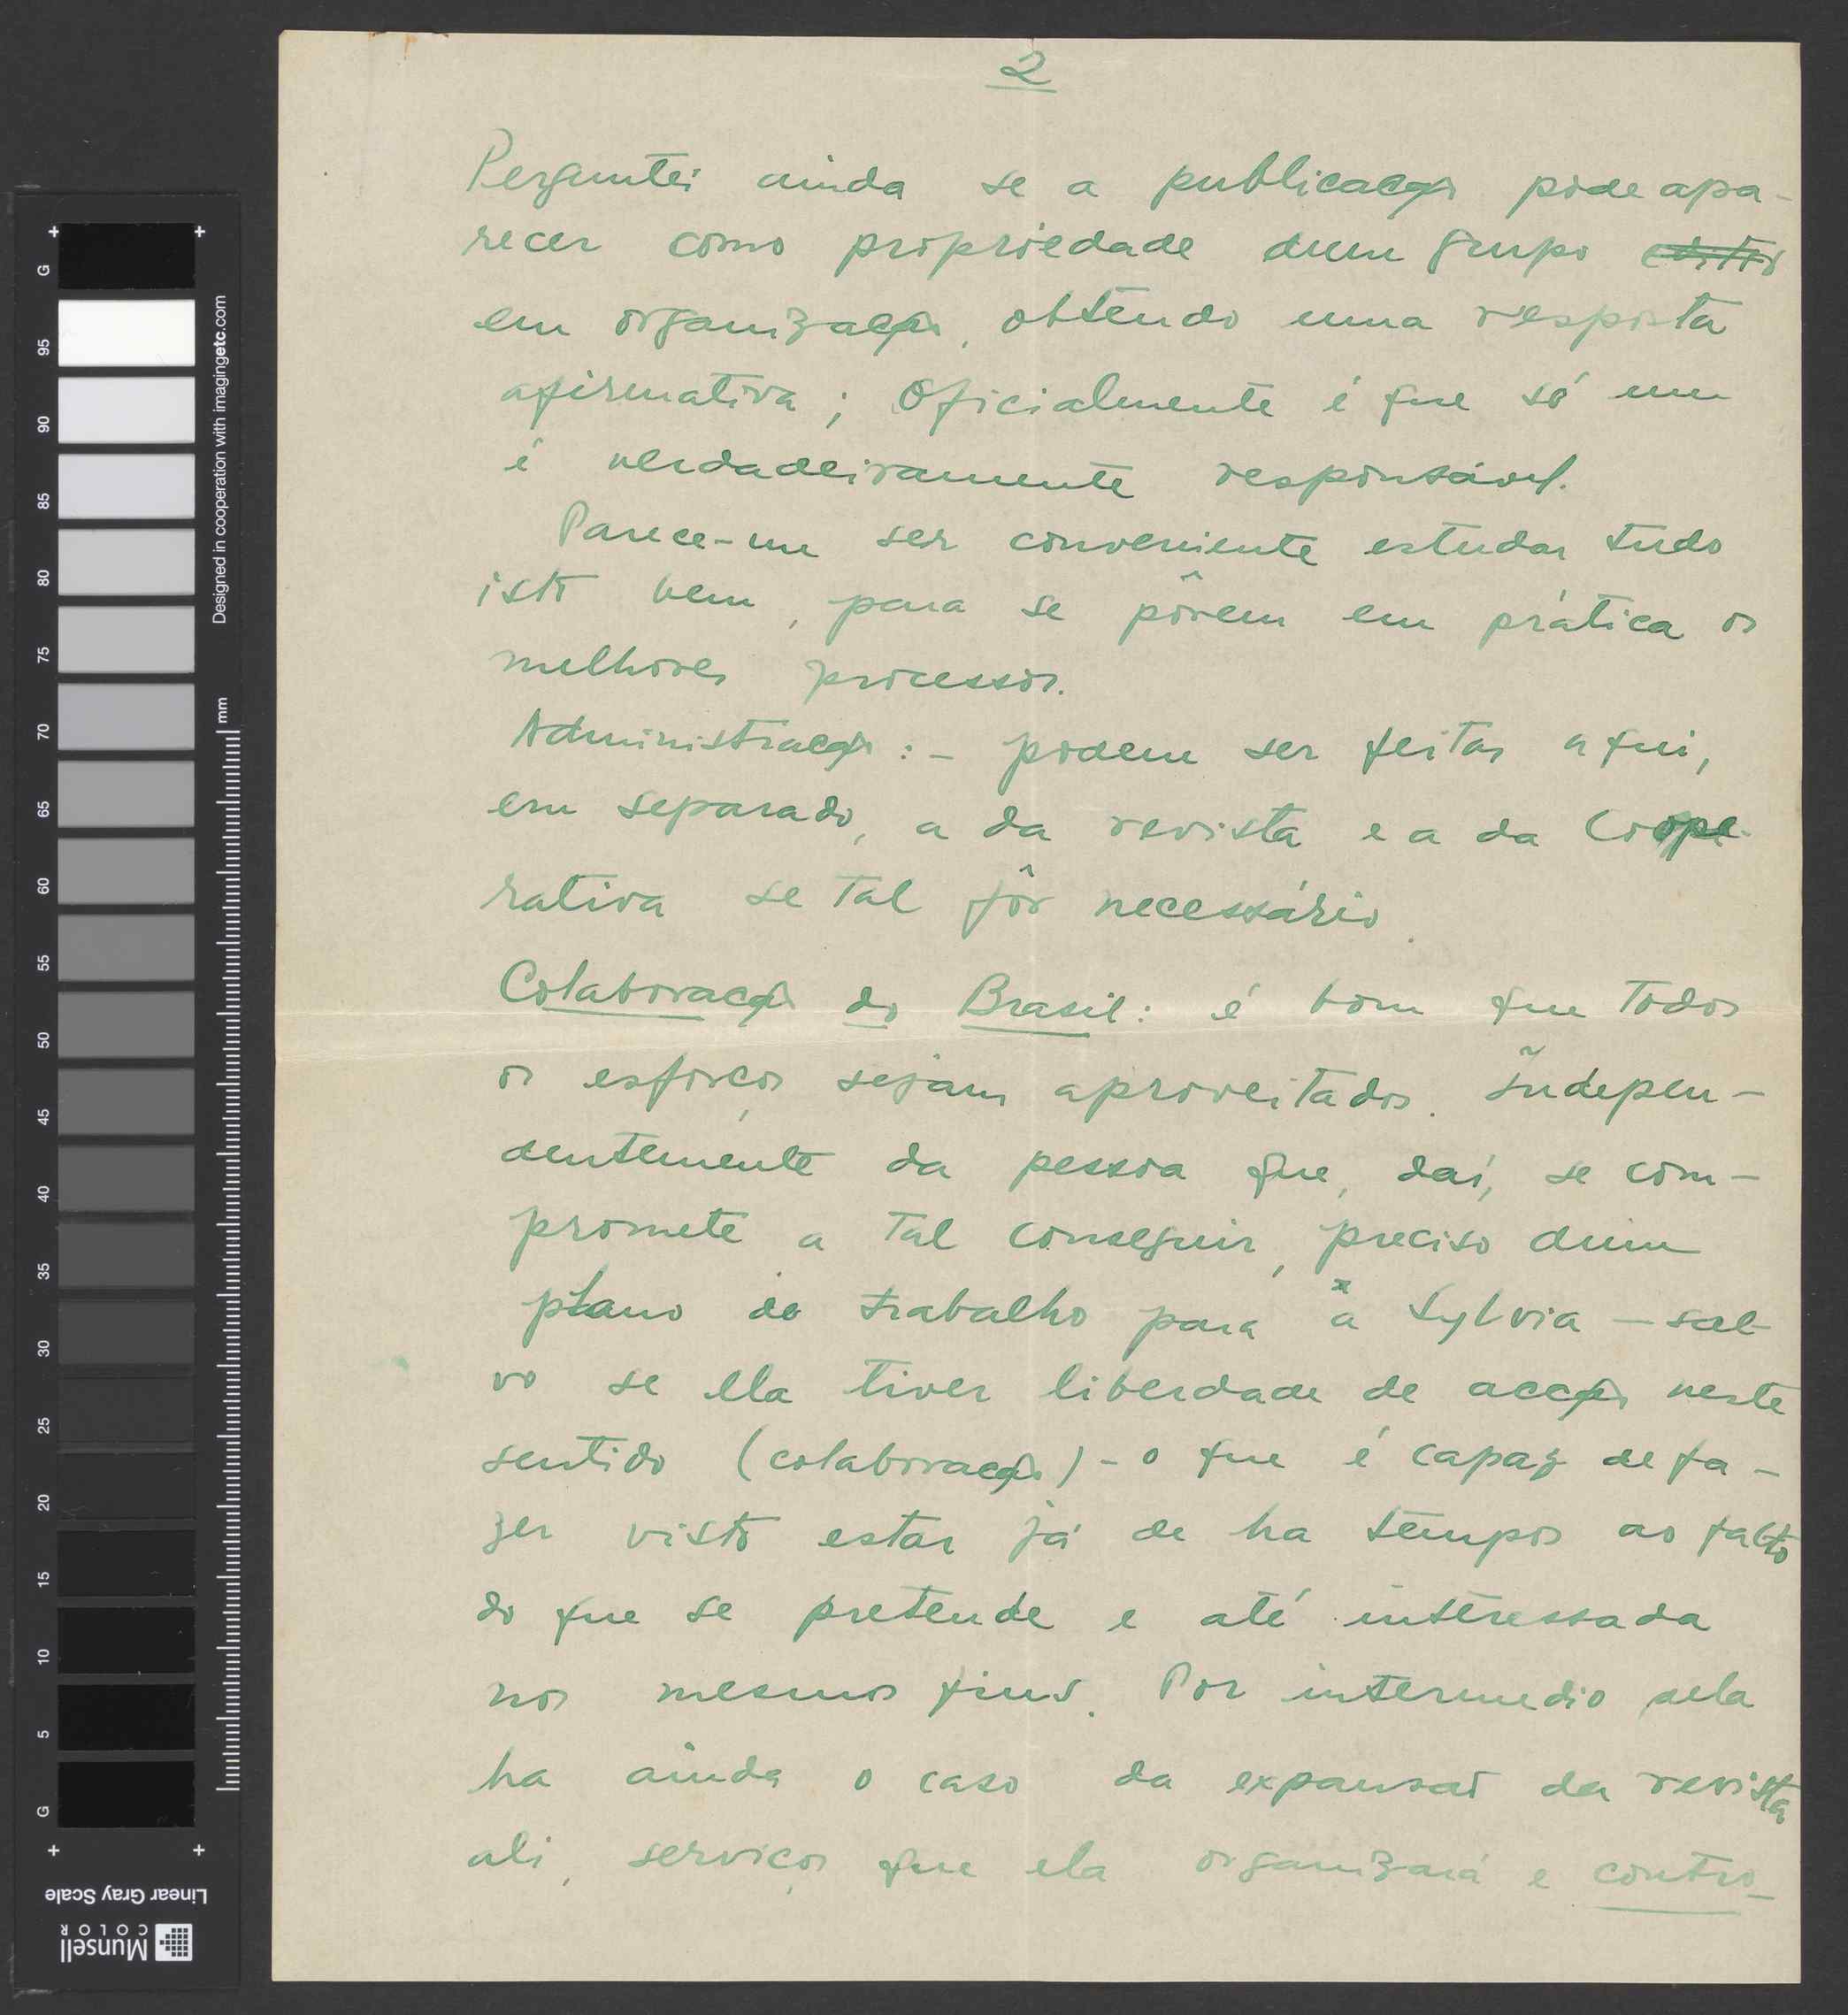 2
Perguntei ainda se a publicação pode apa-
recer como propriedade dum grupo editor
em organização, obtendo uma resposta
afirmativa; Oficialmente é que só um
é verdadeiramente responsável.
Parece-me ser conveniente estudar tudo
isto bem, para se pôrem em prática os
melhores processos.
Administração: - podem ser feitas aqui,
em separado, a da revista e a da Coope-
rativa se tal fôr necessário.
Colaboração do Brasil: é bom que todos
os esforços sejam aproveitados. Indepen-
dentemente da pessoa que, daí, se com-
promete a tal conseguir, preciso dum
plano de trabalho para a Sylvia - sal-
vo se ela tiver liberdade de acção neste
sentido (colaboração) - o que é capaz de fa-
zer visto estar já de ha tempos ao facto
do que se pretende e até interessada
nos mesmos fins. Por intermedio dela
ha ainda o caso da expansão da revista
ali, serviços que ela organizará e contro-
G 95 90 85 80 75 70 65 60 55 50 45 40 35 30 25 20 15 10 5 G
Designed in cooperation with imagingetc.com
mm
Linear Gray Scale
Munsell
COLOR